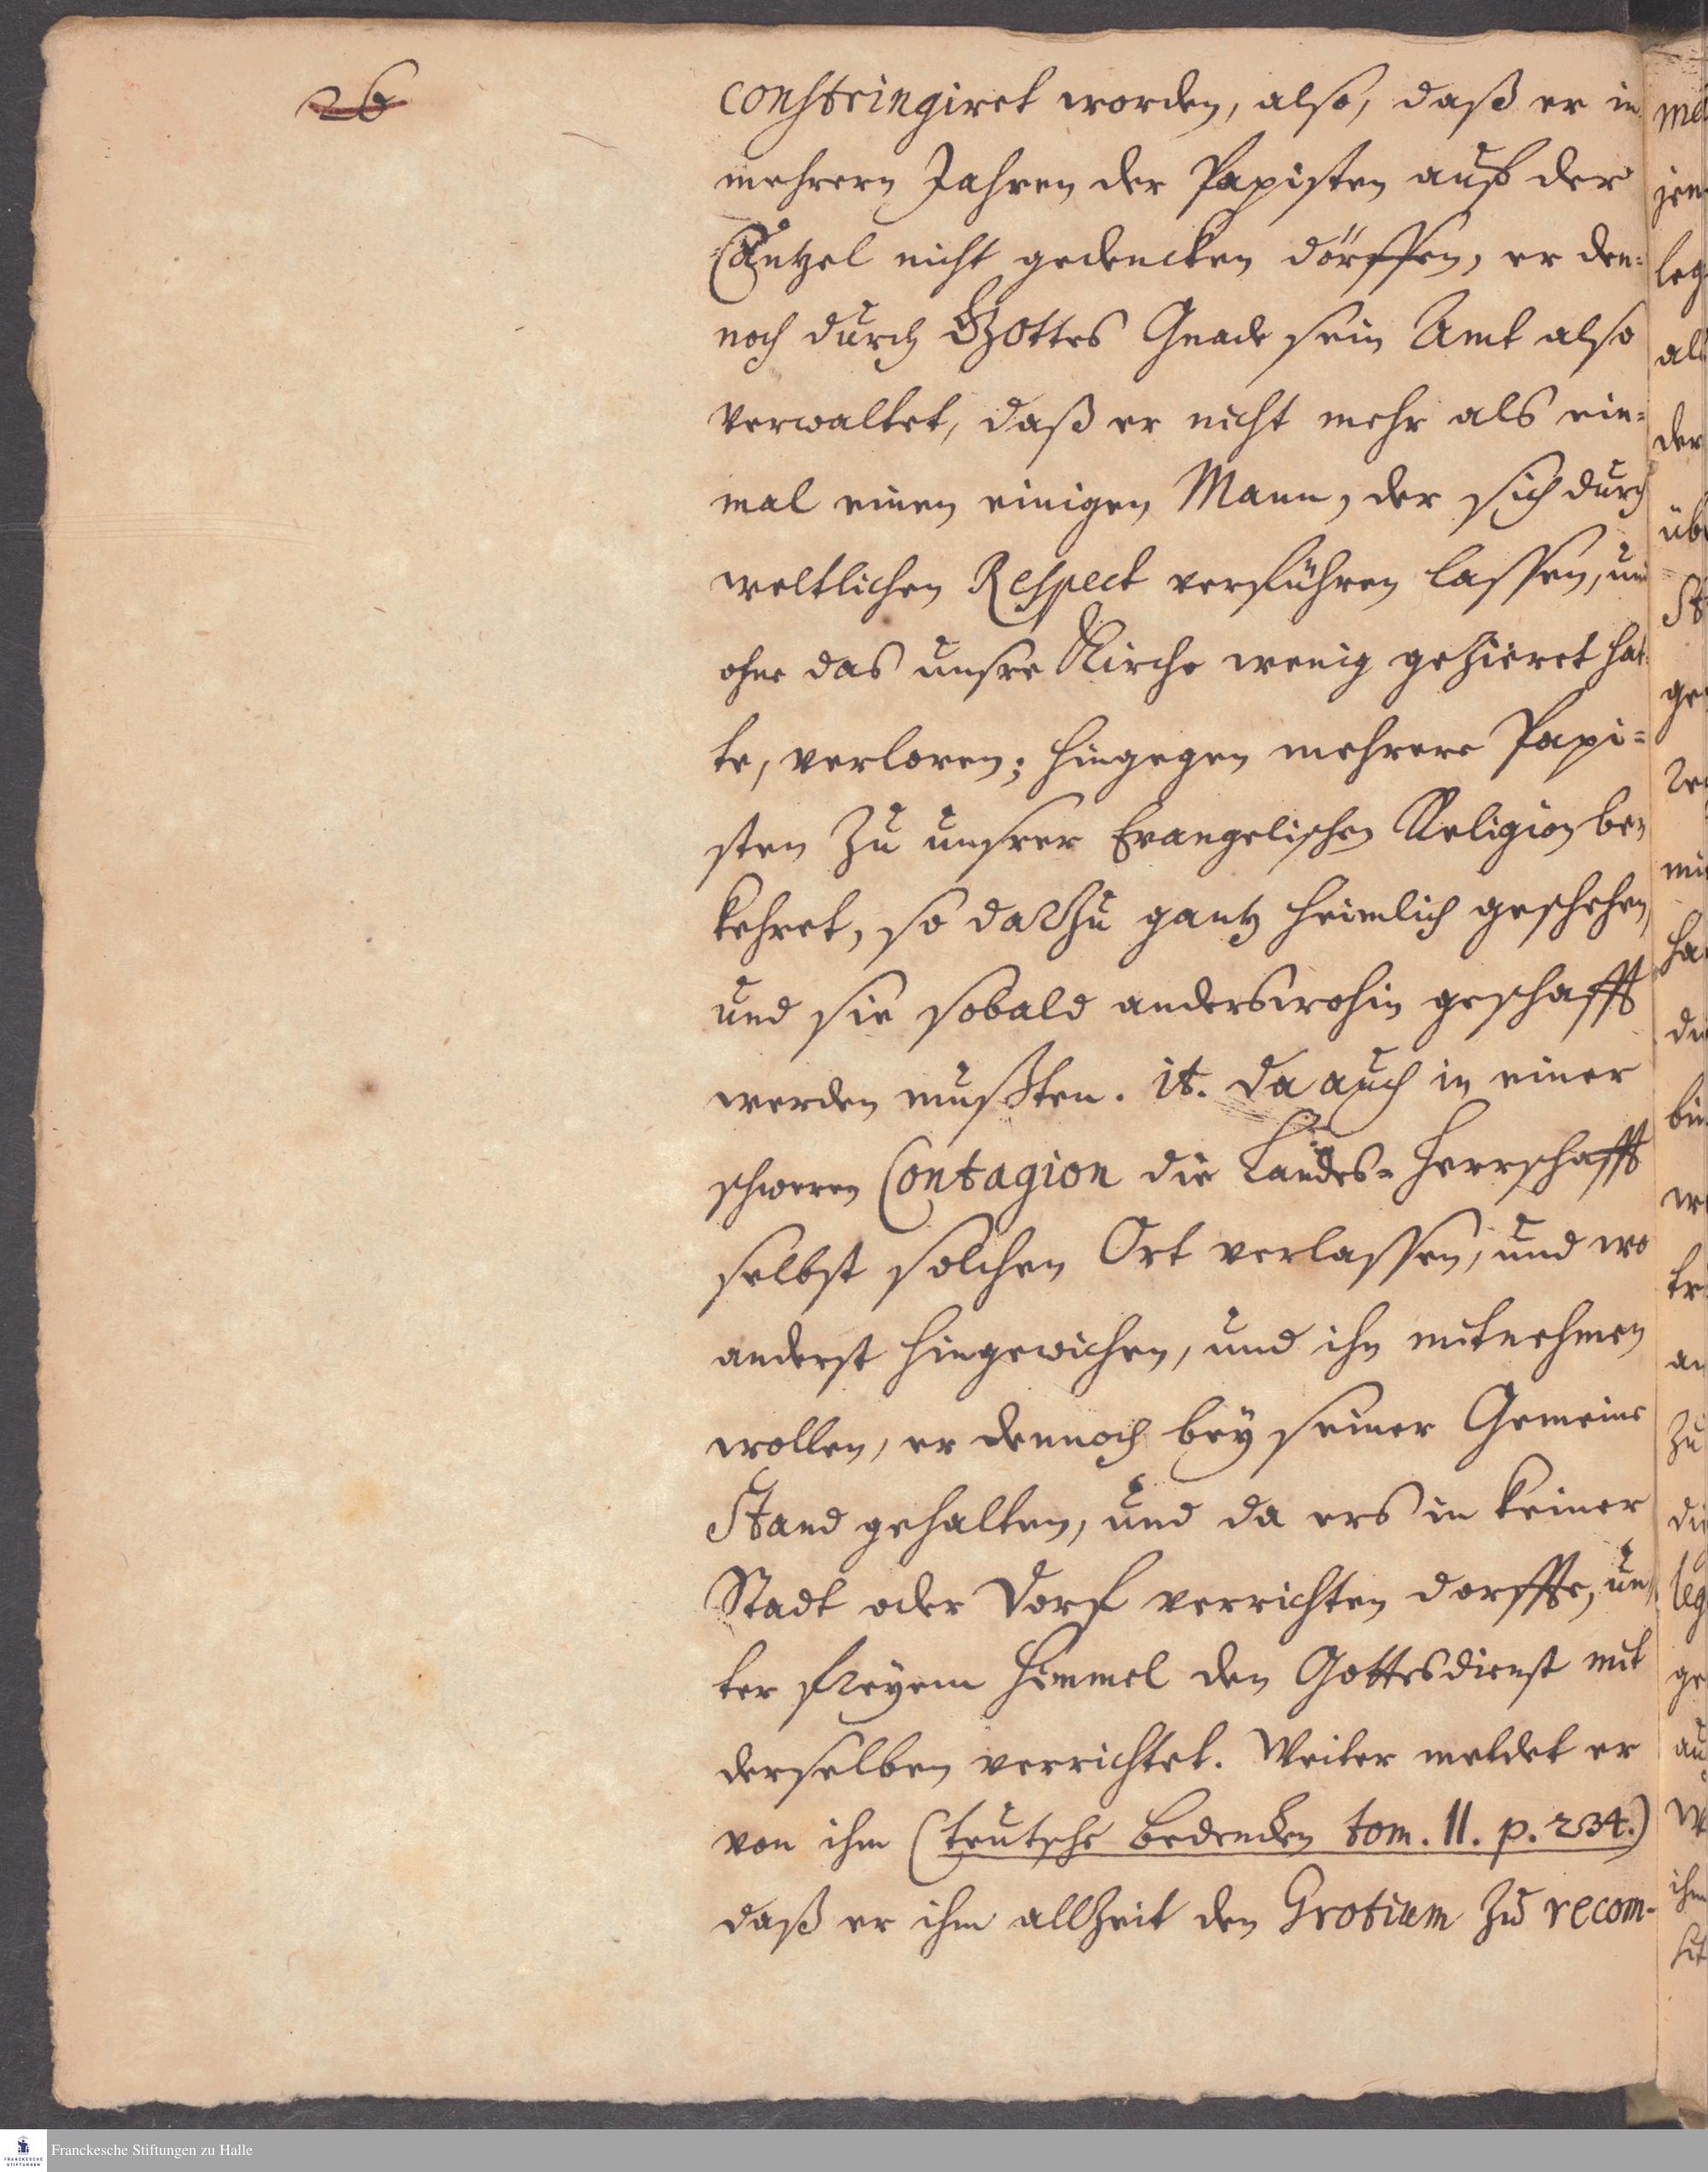 26
constringiret worden, also, daß er in
mehrern Jahren der Papisten auf der
Cantzel nicht gedencken dörffen, er den=
noch durch Gottes Gnade sein Amt also
verwaltet, daß er nicht mehr als ein=
mal einen einigen Mann, der sich durch
weltlichen Respect verführen lassen, und
ohne das unsre Kirche wenig gezieret hat=
te, verloren; hingegen mehrere Papi=
sten zu unsrer Evangelischen Religion be=
kehret, so darzu gantz heimlich geschehen,
und sie sobald anderswohin geschafft
werden mußten. it. da auch in einer
schweren Contagion die Landes=Herrschafft
selbst solchen Ort verlassen, und wo
anderst hingewichen, und ihn mitnehmen
wollen, er dennoch bey seiner Gemeine
Stand gehalten, und da ers in keiner
Stadt oder Dorf verrichten dorffte, un=
ter freyem Himmel den Gottesdienst mit
derselben verrichtet. Weiter meldet er
von ihm (teutsche Bedencken tom. II. p. 234.)
daß er ihm allzeit den Grotium zu recom-
Franckesche Stiftungen zu Halle